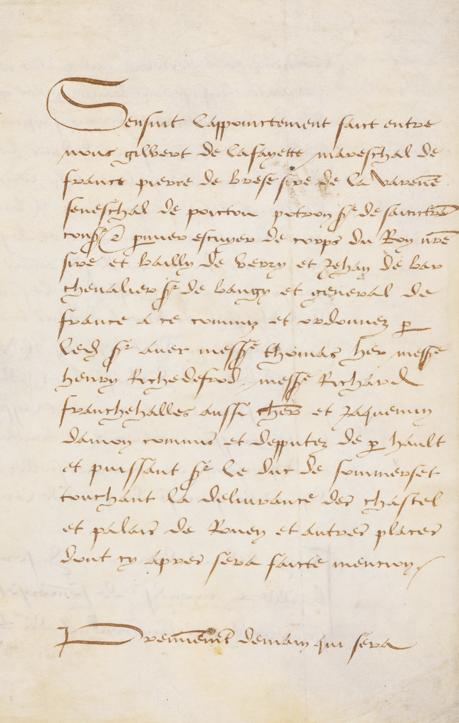 Sensuit lappoinctement faict entre
nous gilbert de lafayette mareschal de
france pierre de breze sire de la varenne
seneschal de poictou potron sr de
conser pmier escuyer de corps du Roy nre
sire et bailly de berry et Jehan de bar
chevalier sr de baugy et general de
france a ce commis et ordonnez p
led sr avec messe thomas hez messe
henry Richedefrod messe Richard
franchehalles aussi chers et Jaquemin
damon commis et depputez de p hault
et puissant sr le duc de sommerset
touchant la delivrance des chastel
et palais de Rouen et autres places
dont cy apres sera faicte mencion
Premierement demain qui sera